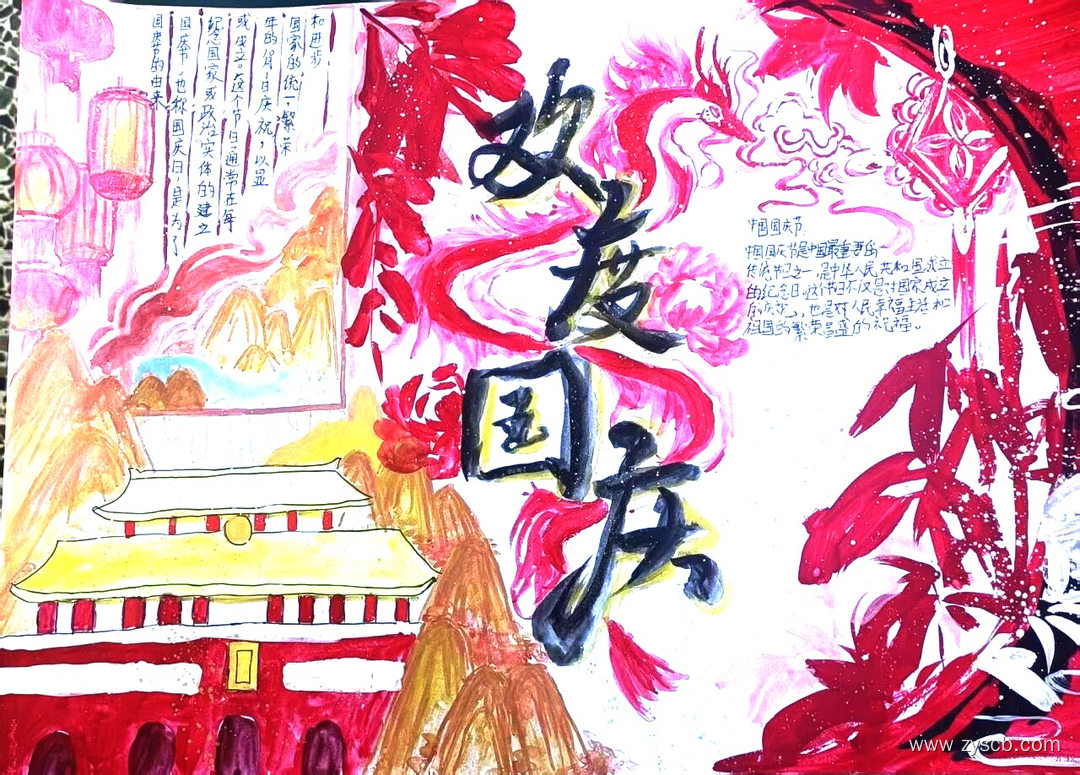 国庆节的由来
国庆节,也称国庆日,是为了
纪念国家或政治实体的建立
或成立。在这个节日通常在每
年的一日庆祝,以显
国家的统一、繁荣
和进步
欢度国庆
中国国庆节
中国国庆节是中国最重要的
传统节日之一,是中华人民共和国成立
的纪念日。这个节日不仅是对国家成立
的庆祝,也是对人民幸福生活和
祖国的繁荣昌盛的祝福。
www.zyscb.com